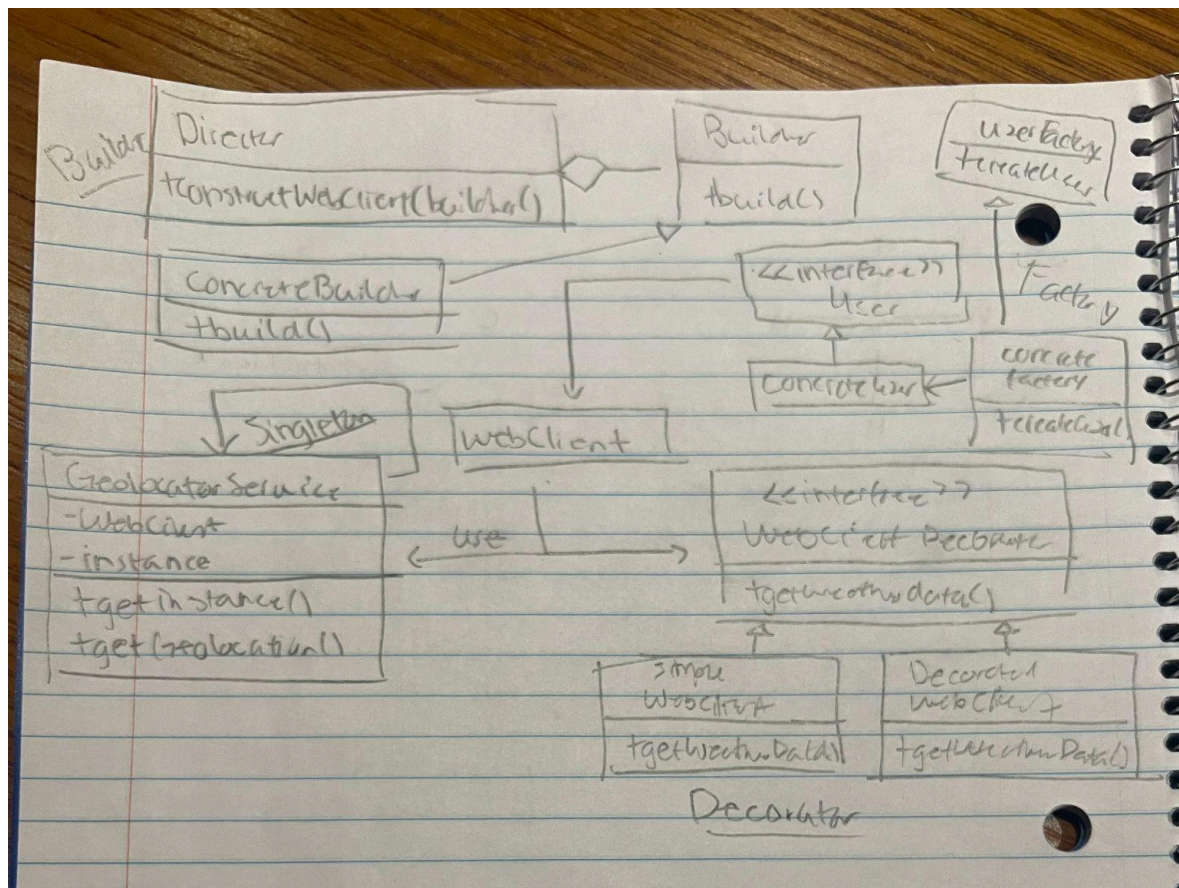 Builder
Director
+constructWebClient(builder)
Builder
+build()
userFactory
+createUser
ConcreteBuilder
+build()
<<interface>>
User
Factory
concreteUser
concrete
factory
+createUser(
Singleton
WebClient
GeolocatorService
-WebClient
-instance
+getinstance()
+getGeolocation()
use
<<interface>>
WebClient Decorator
+getweatherdata()
simple
WebClient
+getWeatherData()
Decorated
WebClient
+getWeatherData()
Decorator